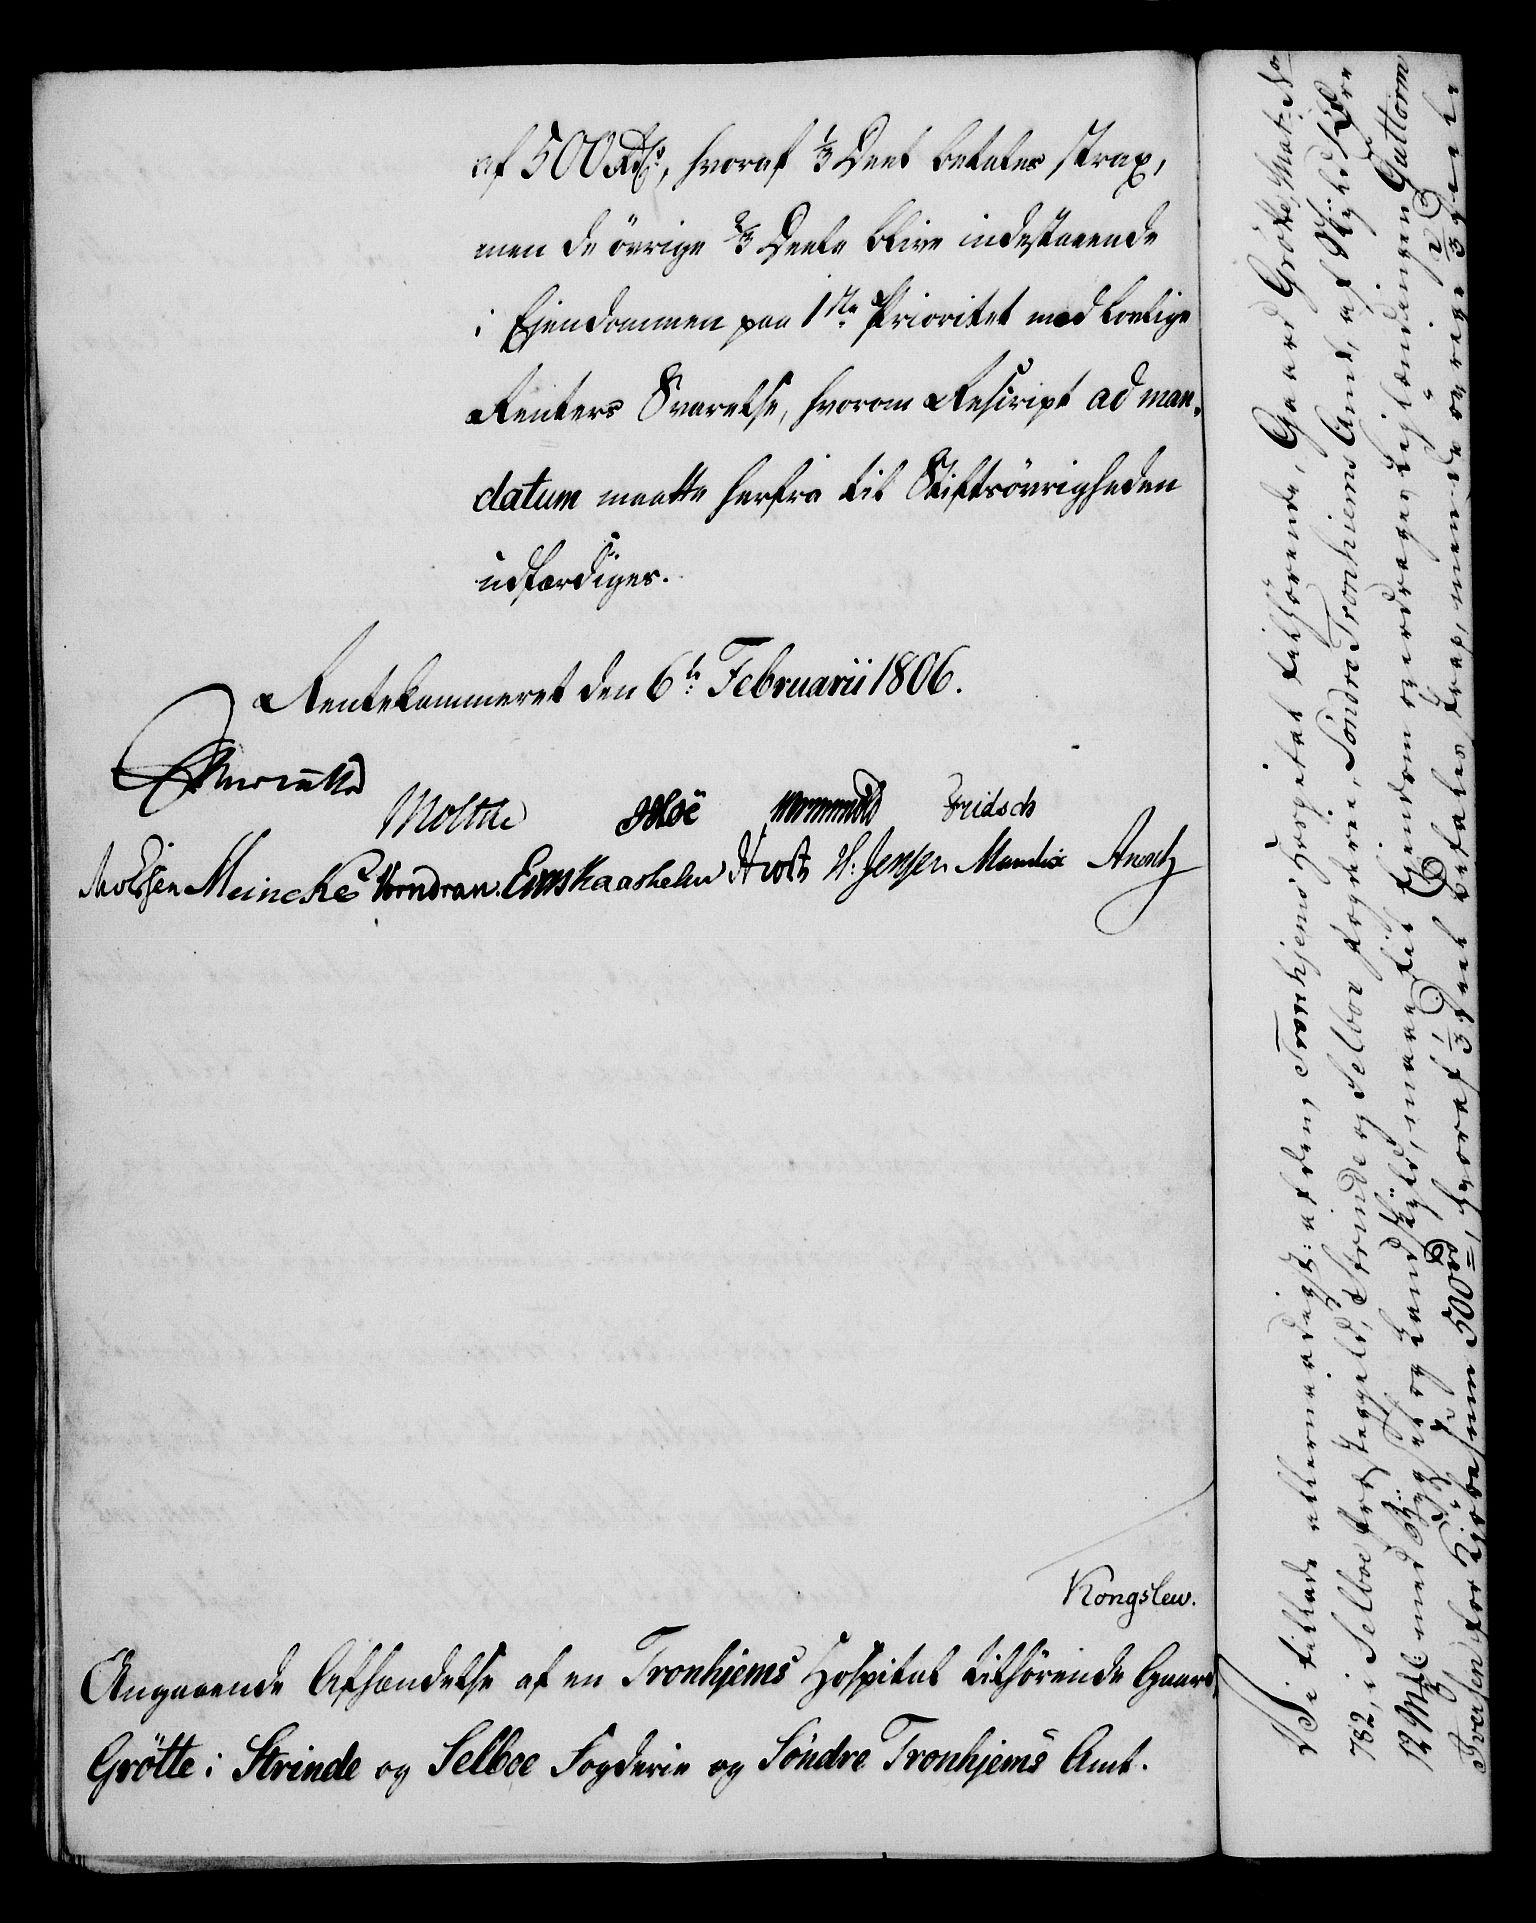 af 500 Rdr, hvoraf 1/3 Deel betales strax,
men de övrige 2/3 Deele blive indestaaende
i Ejendommen paa 1ste Prioritet med lovlige
Renters Svarelse, hvorom Rescript ad man-
datum maatte herfra til Stiftsövrigheden
udfærdiges.
Rentekammeret den 6te Februarii 1806.
Moltke Hoë Wormskiold Fridsch
Meincke Wormdran. Kaasbøl H. Jensen Mandix
Kongslew.
Angaaende Afhændelse af en Tronhjems Hospital tilhörende Gaard
Grötte i Strinde og Selboe Fogderie og Söndre Tronhjems Amt.
Vi tillade allernaadigst: at den, Tronhjems Hospital tilhörende, Gaard Grötte, Mat: No
782, i Selboe Præstegield, Strinde og Selboe Fogderie, Söndre Tronhiems Amt, af Skyld 1 Öre
12 Mkl: med Bygsel og Landskyld, maae til Ejendom overdrages Leilændingen Guttorm
Iversen for Kjöbesum 500 rd, hvoraf 1/3 Deel betales strax, men de övrige 2/3 Deele